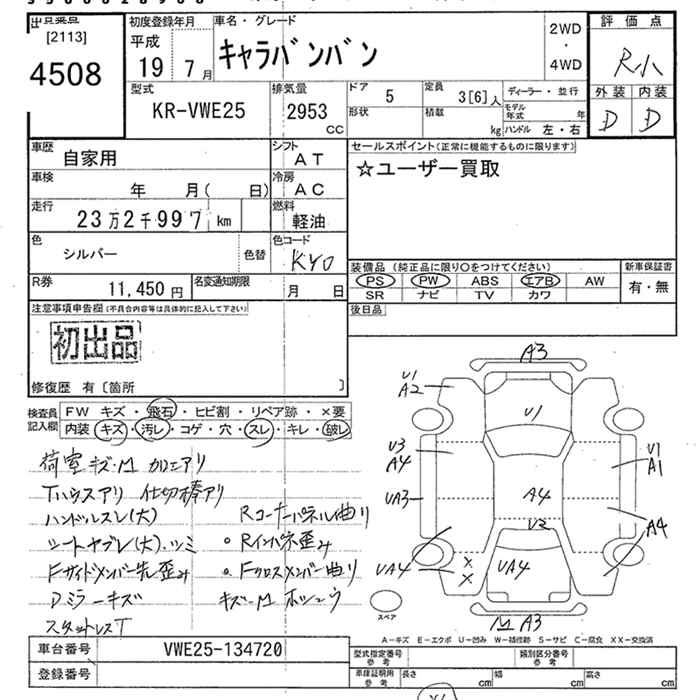 出品業点
[2113]
4508
初度登録年月
平成
19 7月
車名・グレード
キャラバンバン
2WD
・
4WD
評価点
R小
外装 内装
D D
型式
KR-VWE25
排気量
2953 CC
ドア
5
定員
3[6]人
ディーラー・並行
形状
積載
kg
モデル年式 年
ハンドル 左・右
車歴
自家用
シフト
AT
セールスポイント(正常に機能するものに限ります)
☆ユーザー買取
車検
年 月( 日)
冷房
AC
走行
23万2千997km
燃料
軽油
色
シルバー
色替
色コード
KY0
装備品(純正品に限り○をつけてください)
新車保証書
PS PW ABS エアB AW
有・無
SR ナビ TV カワ
R券
11,450円
名変通知期限
月 日
後日品
注意事項申告欄(不具合内容等は具体的に記入して下さい)
初出品
修復歴 有〔箇所 〕
検査員記入欄
FW キズ・飛石・ヒビ割・リペア跡・×要
内装 キズ・汚レ・コゲ・穴・スレ・キレ・破レ
荷室キズ・M カロエアリ
Tハウスアリ 仕切棒アリ
ハンドルスレ(大) Rコーナーパネル曲り
シートヤブレ(大)・シミ ・Rインパネ歪み
Fサイドメンバー先歪み ・Fクロスメンバー曲り
Dミラーキズ キズ・M
スタットレスT
A3
U1
A2
U1
U3
A4
U1
A1
UA3
A4
U2
A4
UA4
×
×
UA4
M A3
スペア
A-キズ E-エクボ U-凹み W-補修跡 S-サビ C-腐食 XX-交換済
車台番号
VWE25-134720
型式指定番号
参考
類別区分番号
参考
登録番号
車庫証明用
参考
長さ cm
幅 cm
高さ cm